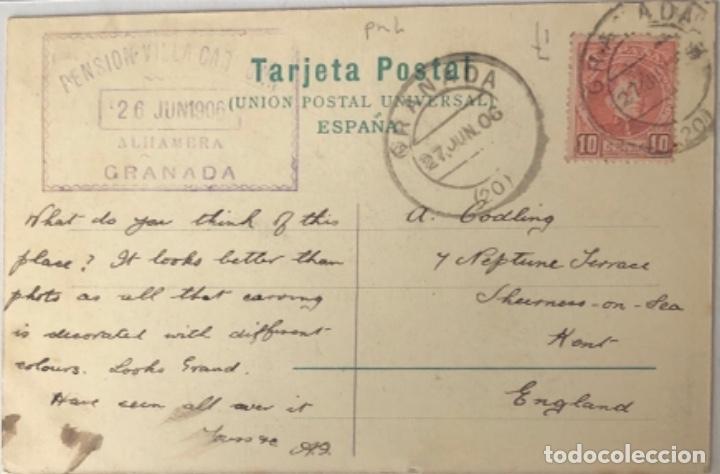 PENSION-VILLA
26 JUN 1906
ALHAMBRA
GRANADA
Tarjeta Postal
(UNION POSTAL UNIVERSAL)
ESPAÑA
GRANADA
27.JUN.06
(20)
10 10
What do you think of this
place? It looks better than
photo as all that carving
is decorated with different
colours. Looks Grand.
Have seen all over it
Yours &c
A. Codling
7 Neptune Terrace
Sheerness-on-Sea
Kent
England
todocoleccion